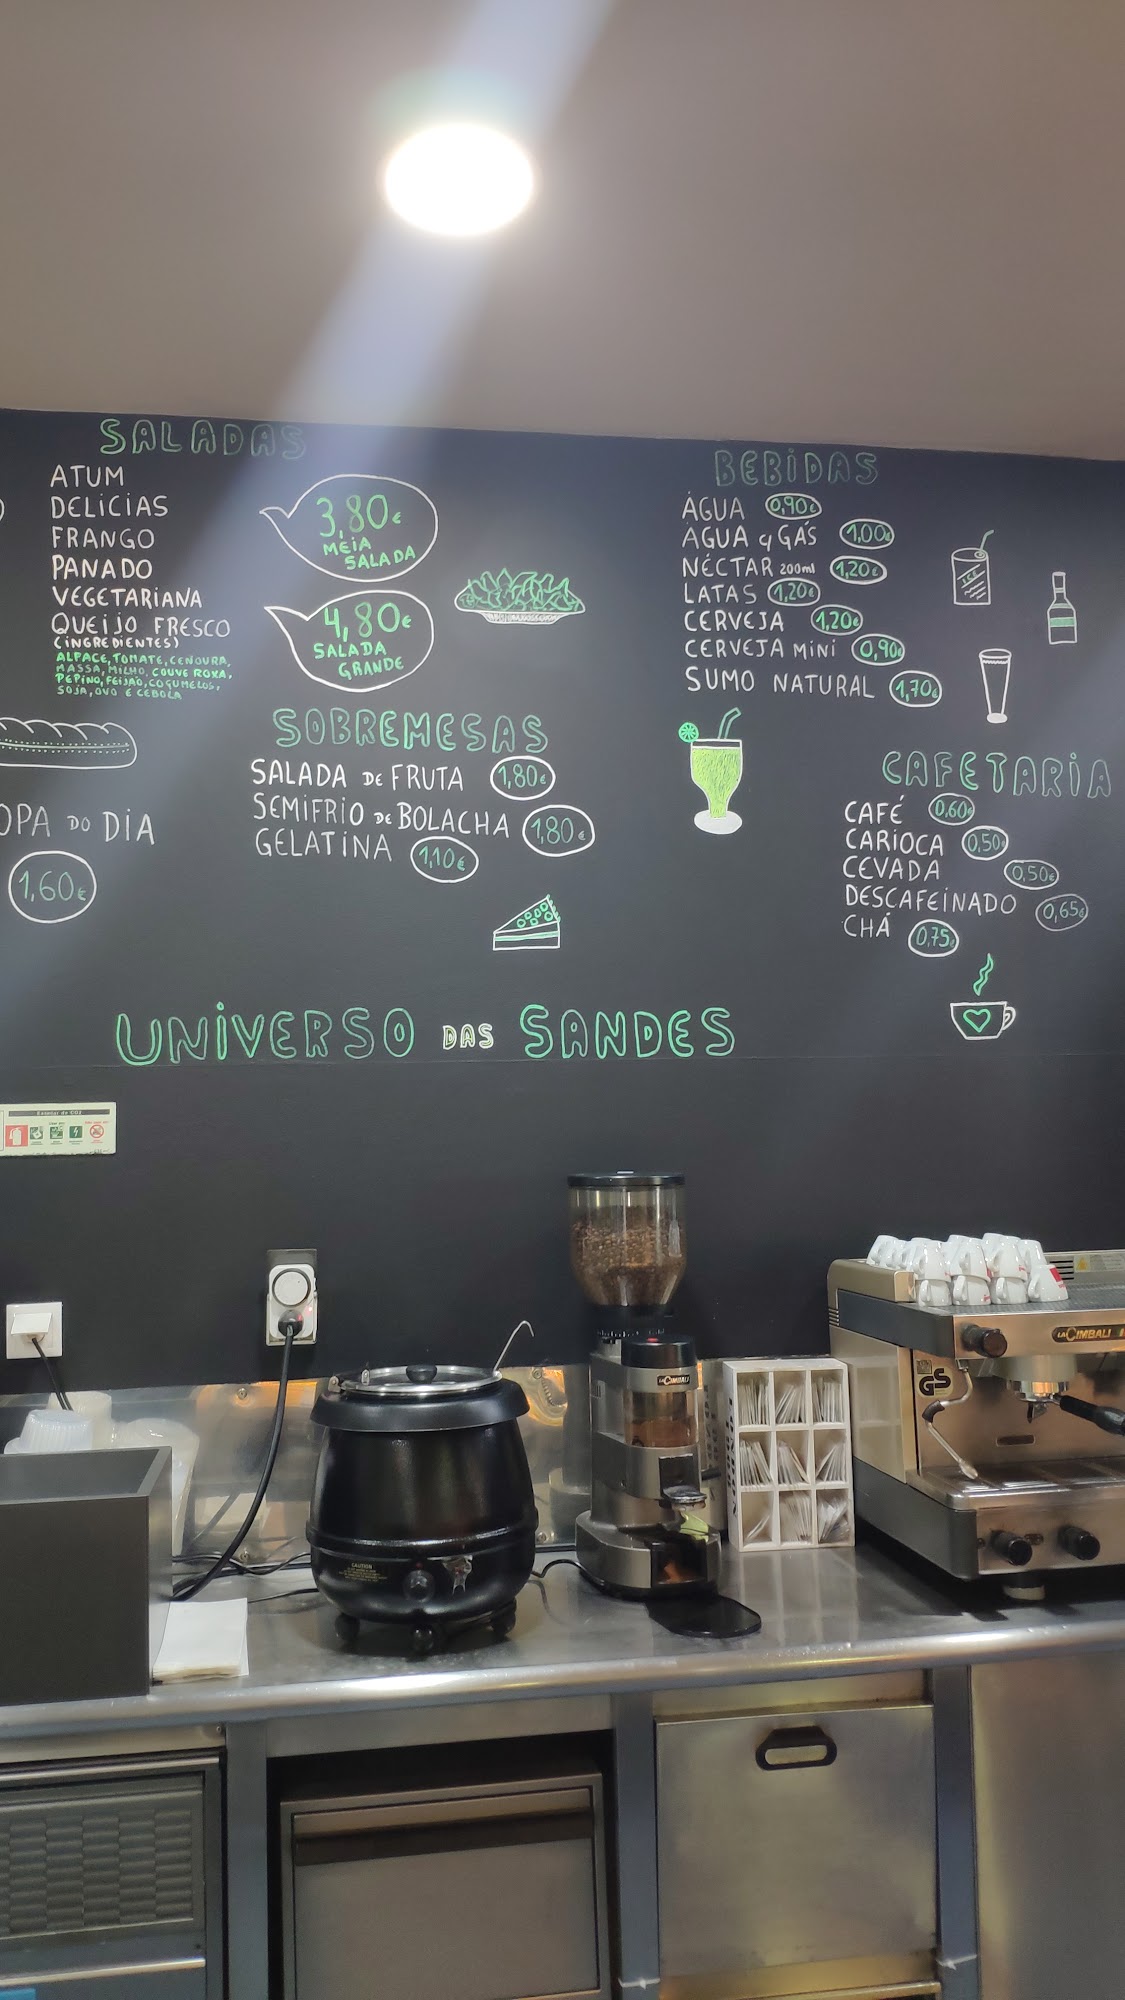 SALADAS
ATUM
DELICIAS
FRANGO
PANADO
VEGETARIANA
QUEIJO FRESCO
(INGREDIENTES)
ALFACE, TOMATE, CENOURA,
MASSA, MILHO, COUVE ROXA,
PEPINO, FEIJÃO, COGUMELOS,
SOJA, OVO E CEBOLA
3,80€
MEIA
SALADA
4,80€
SALADA
GRANDE
OPA DO DIA
1,60€
SOBREMESAS
SALADA DE FRUTA 1,80€
SEMIFRIO DE BOLACHA 1,80€
GELATINA 1,10€
BEBIDAS
ÁGUA 0,90€
ÁGUA C/ GÁS 1,00€
NÉCTAR 200ml 1,20€
LATAS 1,20€
CERVEJA 1,20€
CERVEJA MINI 0,90€
SUMO NATURAL 1,70€
ICE
CAFETARIA
CAFÉ 0,60€
CARIOCA 0,50€
CEVADA 0,50€
DESCAFEINADO 0,65€
CHÁ 0,75€
UNIVERSO DAS SANDES
Extintor de CO2
LACIMBALI
LACIMBALI
GS
CAUTION